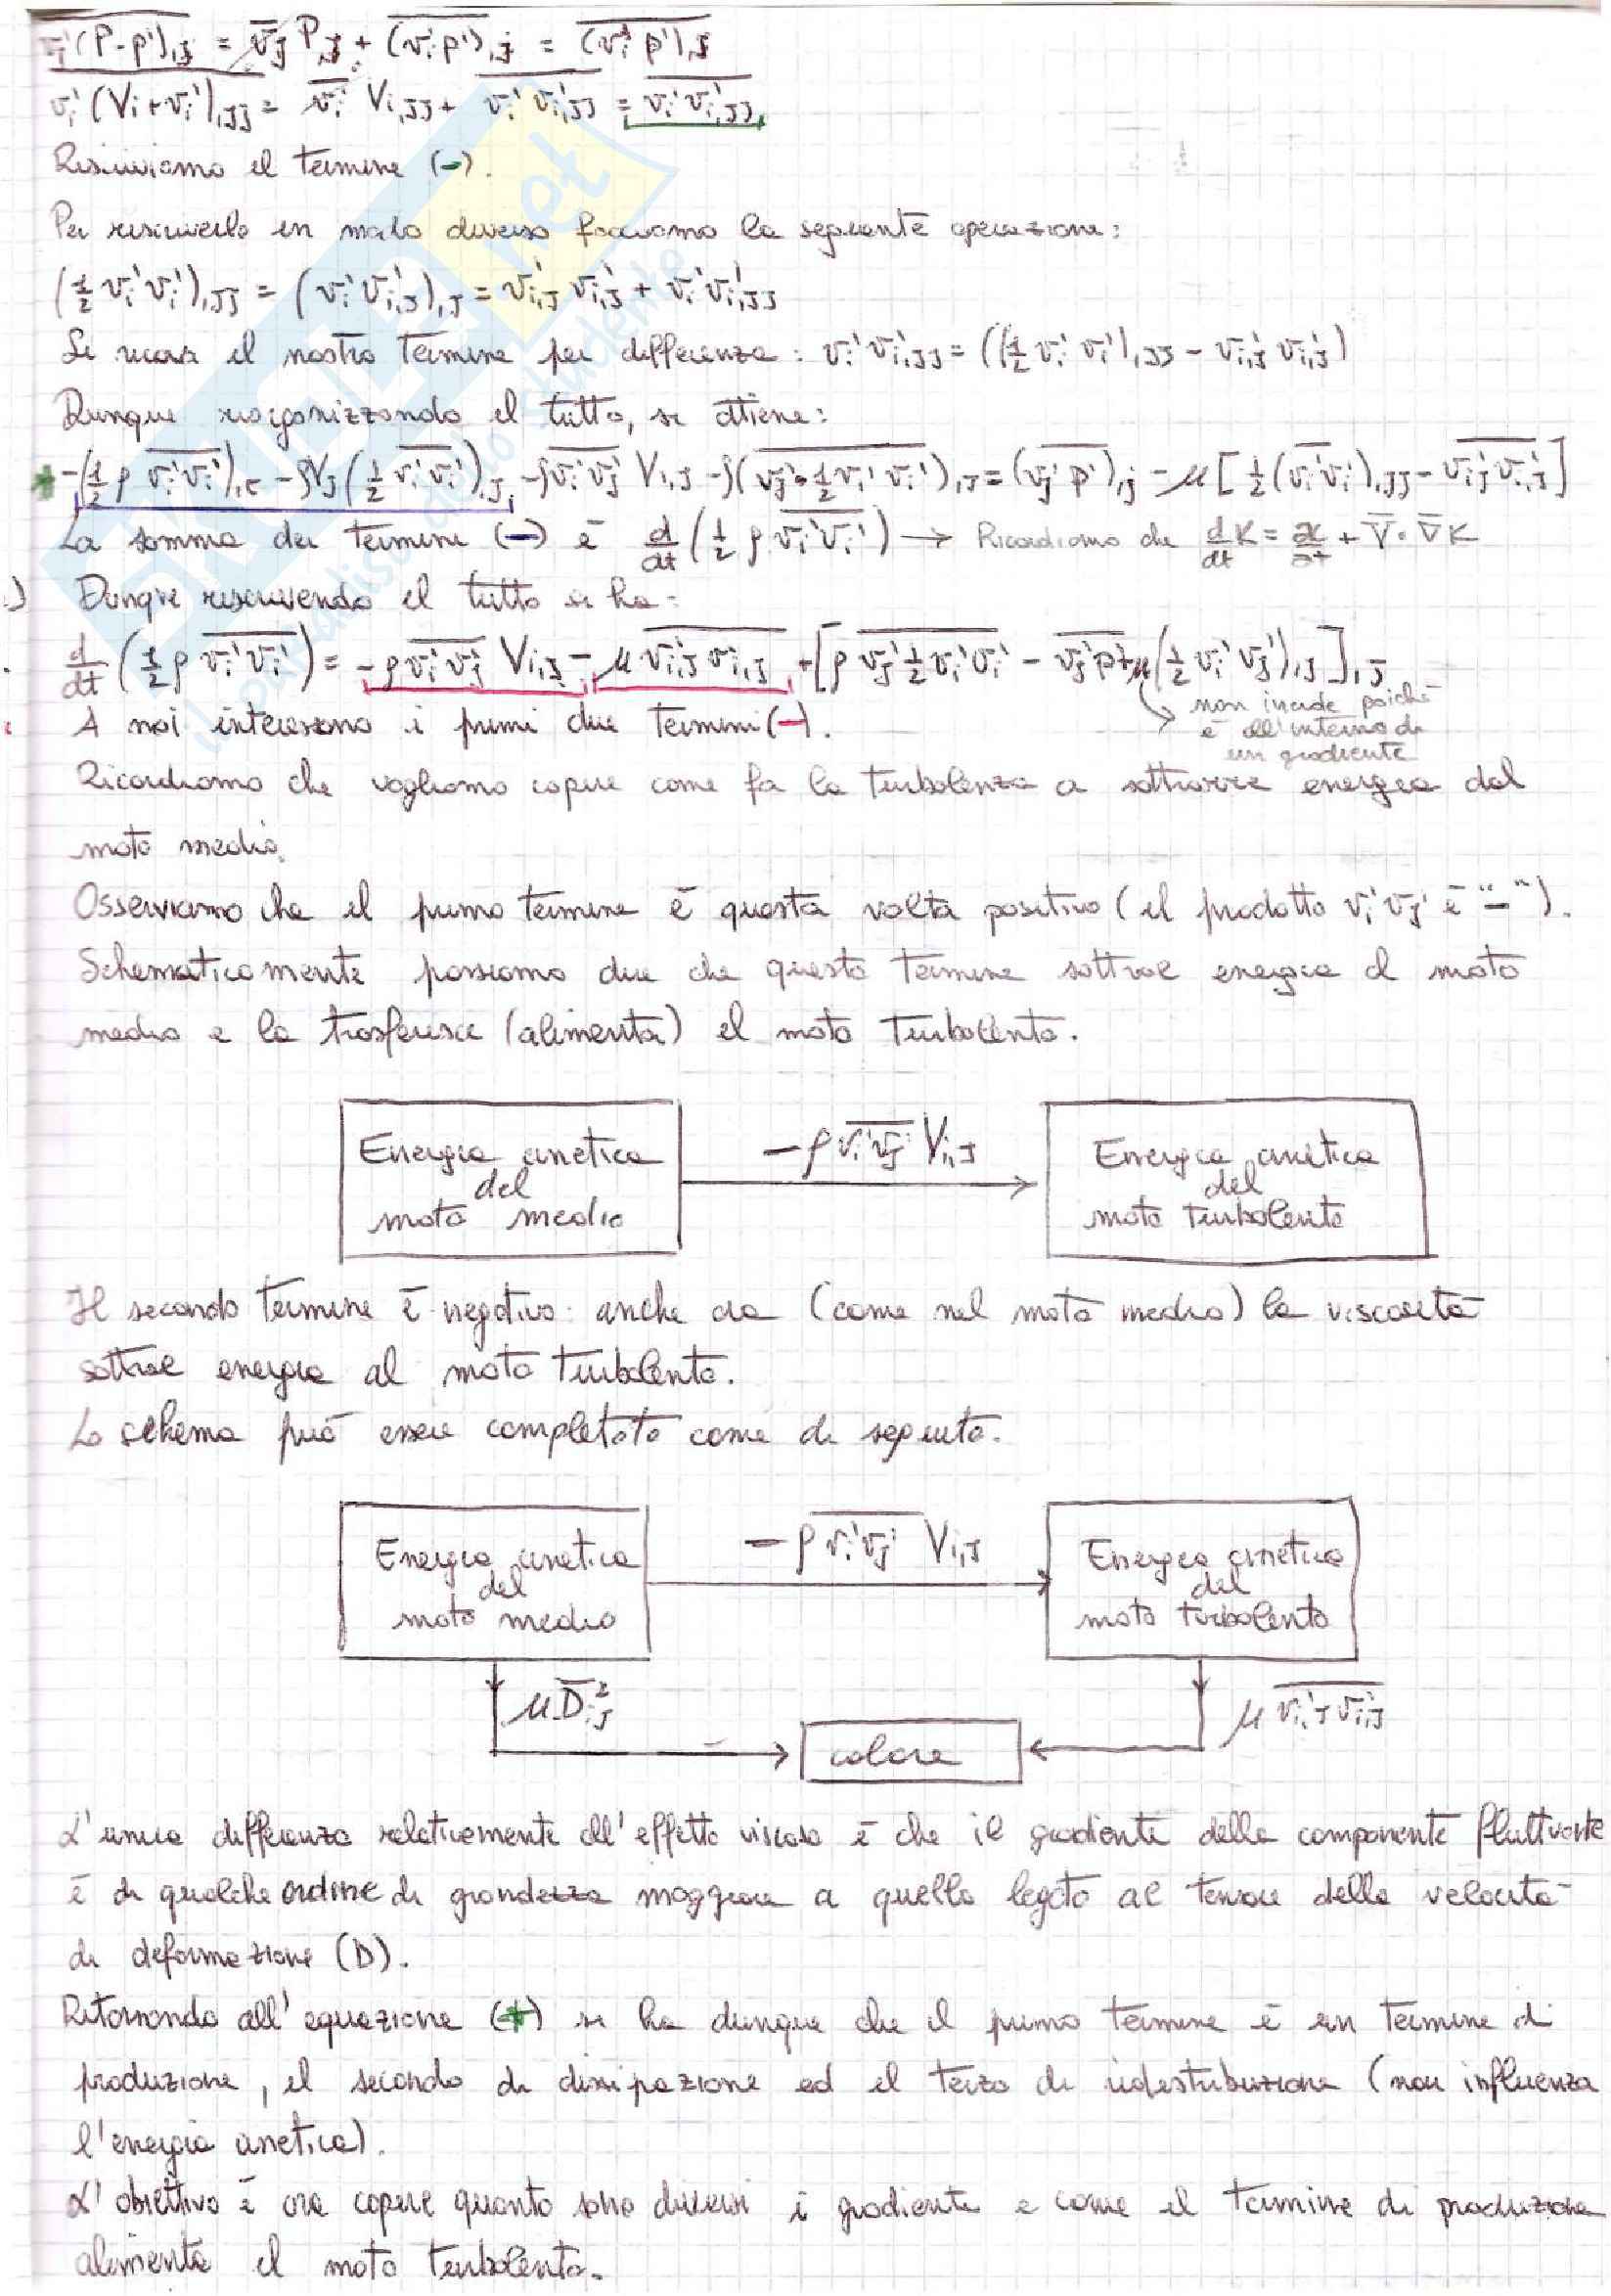 v̅ᵢ'(P-p'),ⱼ = v̅ⱼ P,ⱼ + (vᵢ'p'),ⱼ = (vᵢ'p'),ⱼ
vᵢ'(Vᵢ+vᵢ'),ⱼⱼ = vᵢ' Vᵢ,ⱼⱼ + vᵢ'vᵢ',ⱼⱼ = vᵢ'vᵢ',ⱼⱼ
Riscriviamo il termine (-).
Per riscriverlo in modo diverso facciamo la seguente operazione:
(½ vᵢ'vᵢ'),ⱼⱼ = (vᵢ'vᵢ',ⱼ),ⱼ = vᵢ',ⱼ vᵢ',ⱼ + vᵢ'vᵢ',ⱼⱼ
Si ricava il nostro termine per differenza: vᵢ'vᵢ',ⱼⱼ = ((½ vᵢ'vᵢ'),ⱼⱼ - vᵢ',ⱼ vᵢ',ⱼ)
Dunque riorganizzando il tutto, si ottiene:
* -(½ ρ vᵢ'vᵢ'),t - ρVⱼ(½ vᵢ'vᵢ'),ⱼ - ρvᵢ'vⱼ' Vᵢ,ⱼ - ρ(vⱼ'·½vᵢ'vᵢ'),ⱼ = (vⱼ'p'),ⱼ - μ[½(vᵢ'vᵢ'),ⱼⱼ - vᵢ',ⱼ vᵢ',ⱼ]
La somma dei termini (-) è d/dt (½ ρ vᵢ'vᵢ') → Ricordiamo che d/dt K = ∂K/∂t + V̅·∇̅K
Dunque riscrivendo il tutto si ha:
d/dt (½ρ vᵢ'vᵢ') = -ρvᵢ'vⱼ' Vᵢ,ⱼ - μ vᵢ',ⱼ vᵢ',ⱼ + [ρ vⱼ'½vᵢ'vᵢ' - vⱼ'p' + μ(½vᵢ'vⱼ'),ⱼ],ⱼ
non incide poiché
A noi interessano i primi due termini (-).
è all'interno di
un gradiente
Ricordiamo che vogliamo capire come fa la turbolenza a sottrarre energia dal
moto medio.
Osserviamo che il primo termine è questa volta positivo (il prodotto vᵢ'vⱼ' è "-").
Schematicamente possiamo dire che questo termine sottrae energia al moto
medio e la trasferisce (alimenta) al moto turbolento.
Energia cinetica
del
moto medio
-ρ vᵢ'vⱼ' Vᵢ,ⱼ
Energia cinetica
del
moto turbolento
Il secondo termine è negativo: anche qua (come nel moto medio) la viscosità
sottrae energia al moto turbolento.
Lo schema può essere completato come di seguito.
Energia cinetica
del
moto medio
-ρ vᵢ'vⱼ' Vᵢ,ⱼ
Energia cinetica
del
moto turbolento
μD̅ᵢⱼ²
calore
μ vᵢ',ⱼ vᵢ',ⱼ
L'unica differenza relativamente all'effetto viscoso è che il gradiente della componente fluttuante
è di qualche ordine di grandezza maggiore a quello legato al tensore della velocità
di deformazione (D).
Ritornando all'equazione (*) si ha dunque che il primo termine è un termine di
produzione, il secondo di dissipazione ed il terzo di ridistribuzione (non influenza
l'energia cinetica).
L'obiettivo è ora capire quanto sono diversi i gradienti e come il termine di produzione
alimenta il moto turbolento.